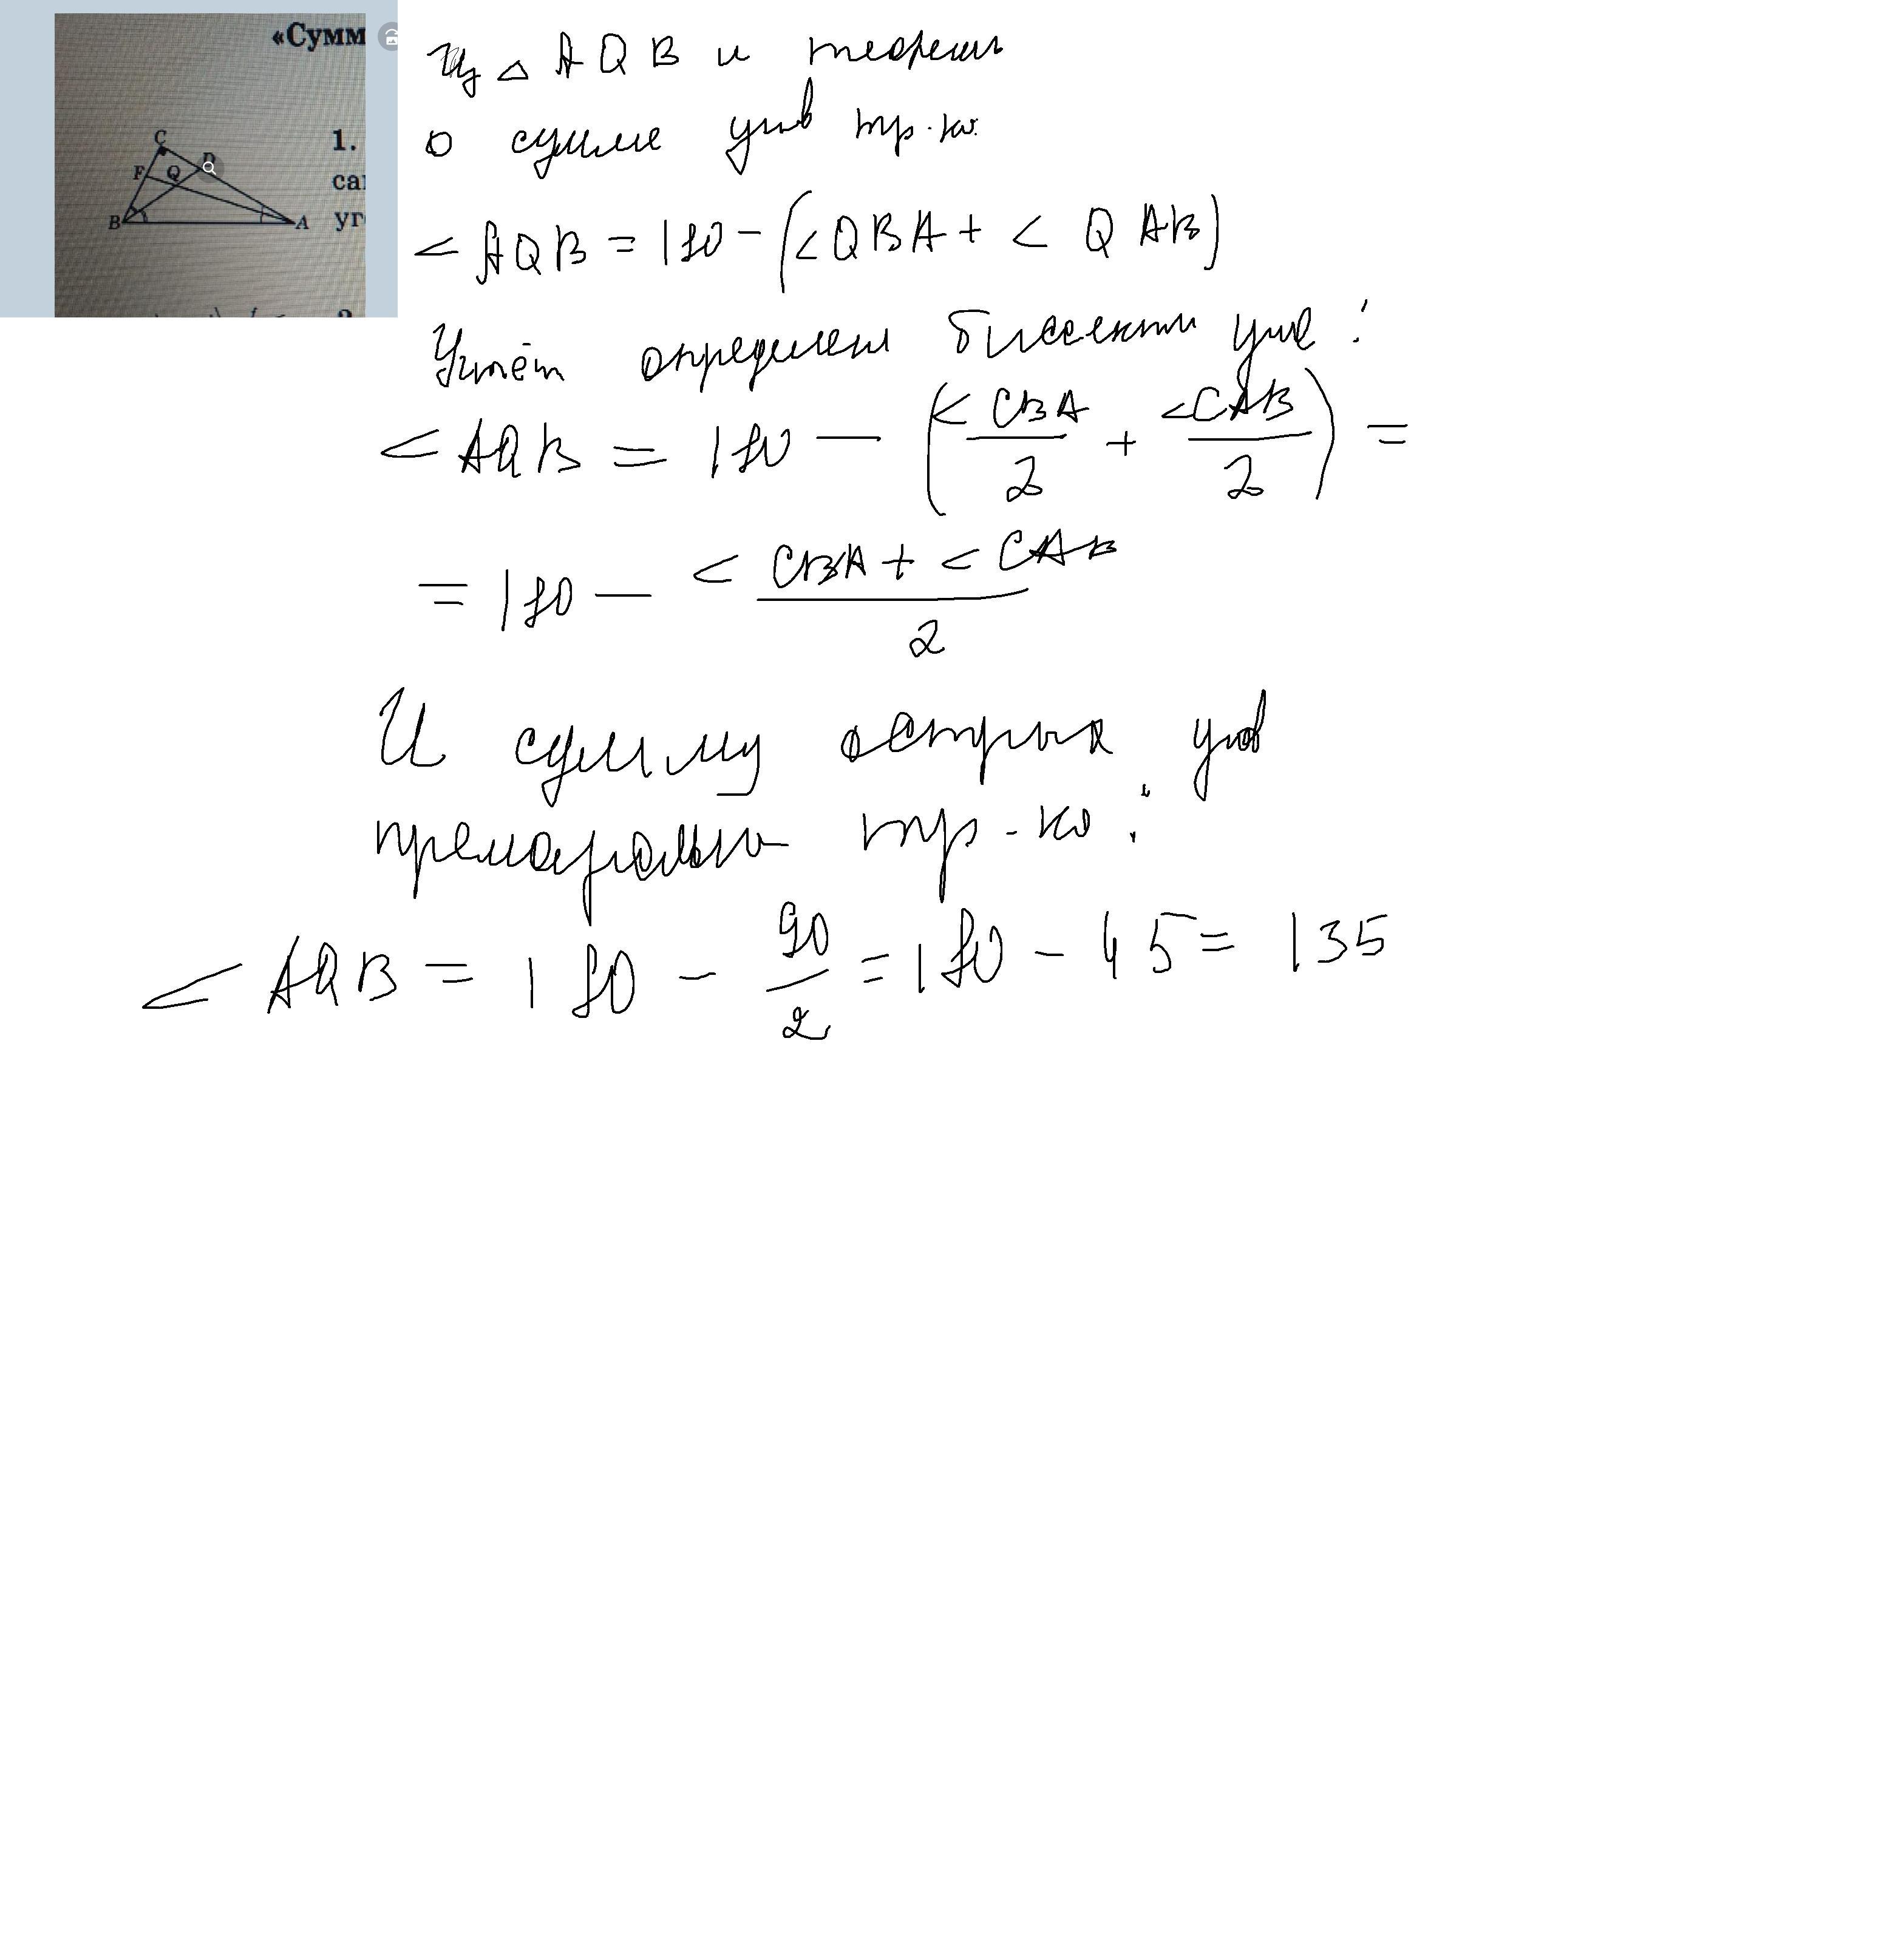 «Сумм
C
D
1.
F
Q
са
B
A
уг
Из △ AQB и теоремы
о сумме углов тр-ка
< AQB = 180 - (< QBA + < QAB)
Учтём определение биссектрисы угла:
< AQB = 180 - (< CBA / 2 + < CAB / 2) =
= 180 - < CBA + < CAB / 2
И сумму острых углов
прямоугольного тр-ка:
< AQB = 180 - 90 / 2 = 180 - 45 = 135